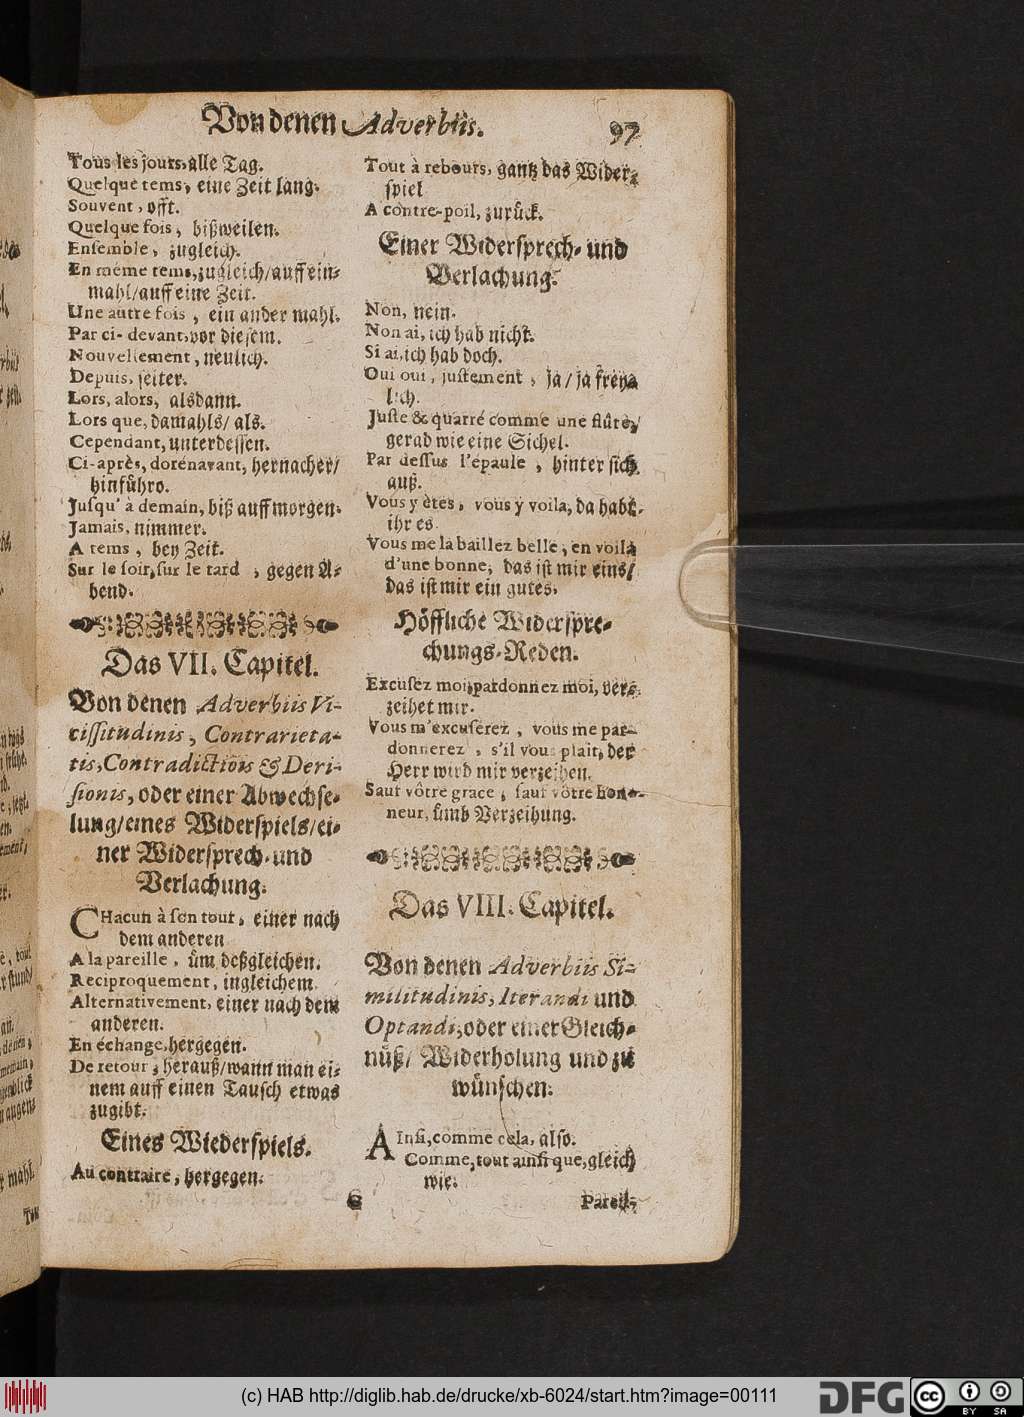 Von denen Adverbiis. 97
Tous les jours, alle Tag.
Quelque tems, eine Zeit lang.
Souvent, offt.
Quelque fois, bißweilen.
Ensemble, zugleich.
En méme tems, zugleich/auff ein-
mahl/auff eine Zeit.
Une autre fois, ein ander mahl.
Par ci-devant, vor diesem.
Nouvellement, neulich.
Depuis, seiter.
Lors, alors, alsdann.
Lors que, damahls/ als.
Cependant, unterdessen.
Ci-après, dorénavant, hernacher/
hinführo.
Jusqu' à demain, biß auff morgen.
Jamais, nimmer.
A tems, bey Zeit.
Sur le soir, sur le tard, gegen A-
bend.
Das VII. Capitel.
Von denen Adverbiis Vi-
cissitudinis, Contrarieta-
tis, Contradictiois & Deri-
sionis, oder einer Abwechse-
lung/eines Widerspiels/ei-
ner Widersprech- und
Verlachung.
CHacun à son tour, einer nach
dem anderen
A la pareille, üm deßgleichen.
Reciproquement, ingleichem.
Alternativement, einer nach dem
anderen.
En échange, hergegen.
De retour, herauß/wann man ei-
nem auff einen Tausch etwas
zugibt.
Eines Wiederspiels.
Au contraire, hergegen.
C
Tout à rebours, gantz das Wider-
spiel
A contre-poil, zurück.
Einer Widersprech- und
Verlachung.
Non, nein.
Non ai, ich hab nicht.
Si ai, ich hab doch.
Oui oui, justement, ja/ ja frey-
lich.
Juste & quarré comme une flûte,/
gerad wie eine Sichel.
Par dessus l'épaule, hinter sich
auß.
Vous y ètes, vous y voila, da habt
ihr es.
Vous me la baillez belle, en voila
d'une bonne, das ist mir eins/
das ist mir ein gutes.
Höffliche Widerspre-
chungs-Reden.
Excusez moi, pardonnez moi, ver-
zeihet mir.
Vous m'excuserez, vous me par-
donnerez, s'il vous plait, der
Herr wird mir verzeihen.
Sauf vôtre grace, sauf vôtre hon-
neur, ümb Verzeihung.
Das VIII. Capitel.
Von denen Adverbiis Si-
militudinis, Iterandi und
Optandi, oder einer Gleich-
nüß/ Widerholung und zu
wünschen.
AInsi, comme cela, also.
Comme, tout ainsi que, gleich
wie.
Pareil-
(c) HAB http://diglib.hab.de/drucke/xb-6024/start.htm?image=00111
DFG
cc BY SA